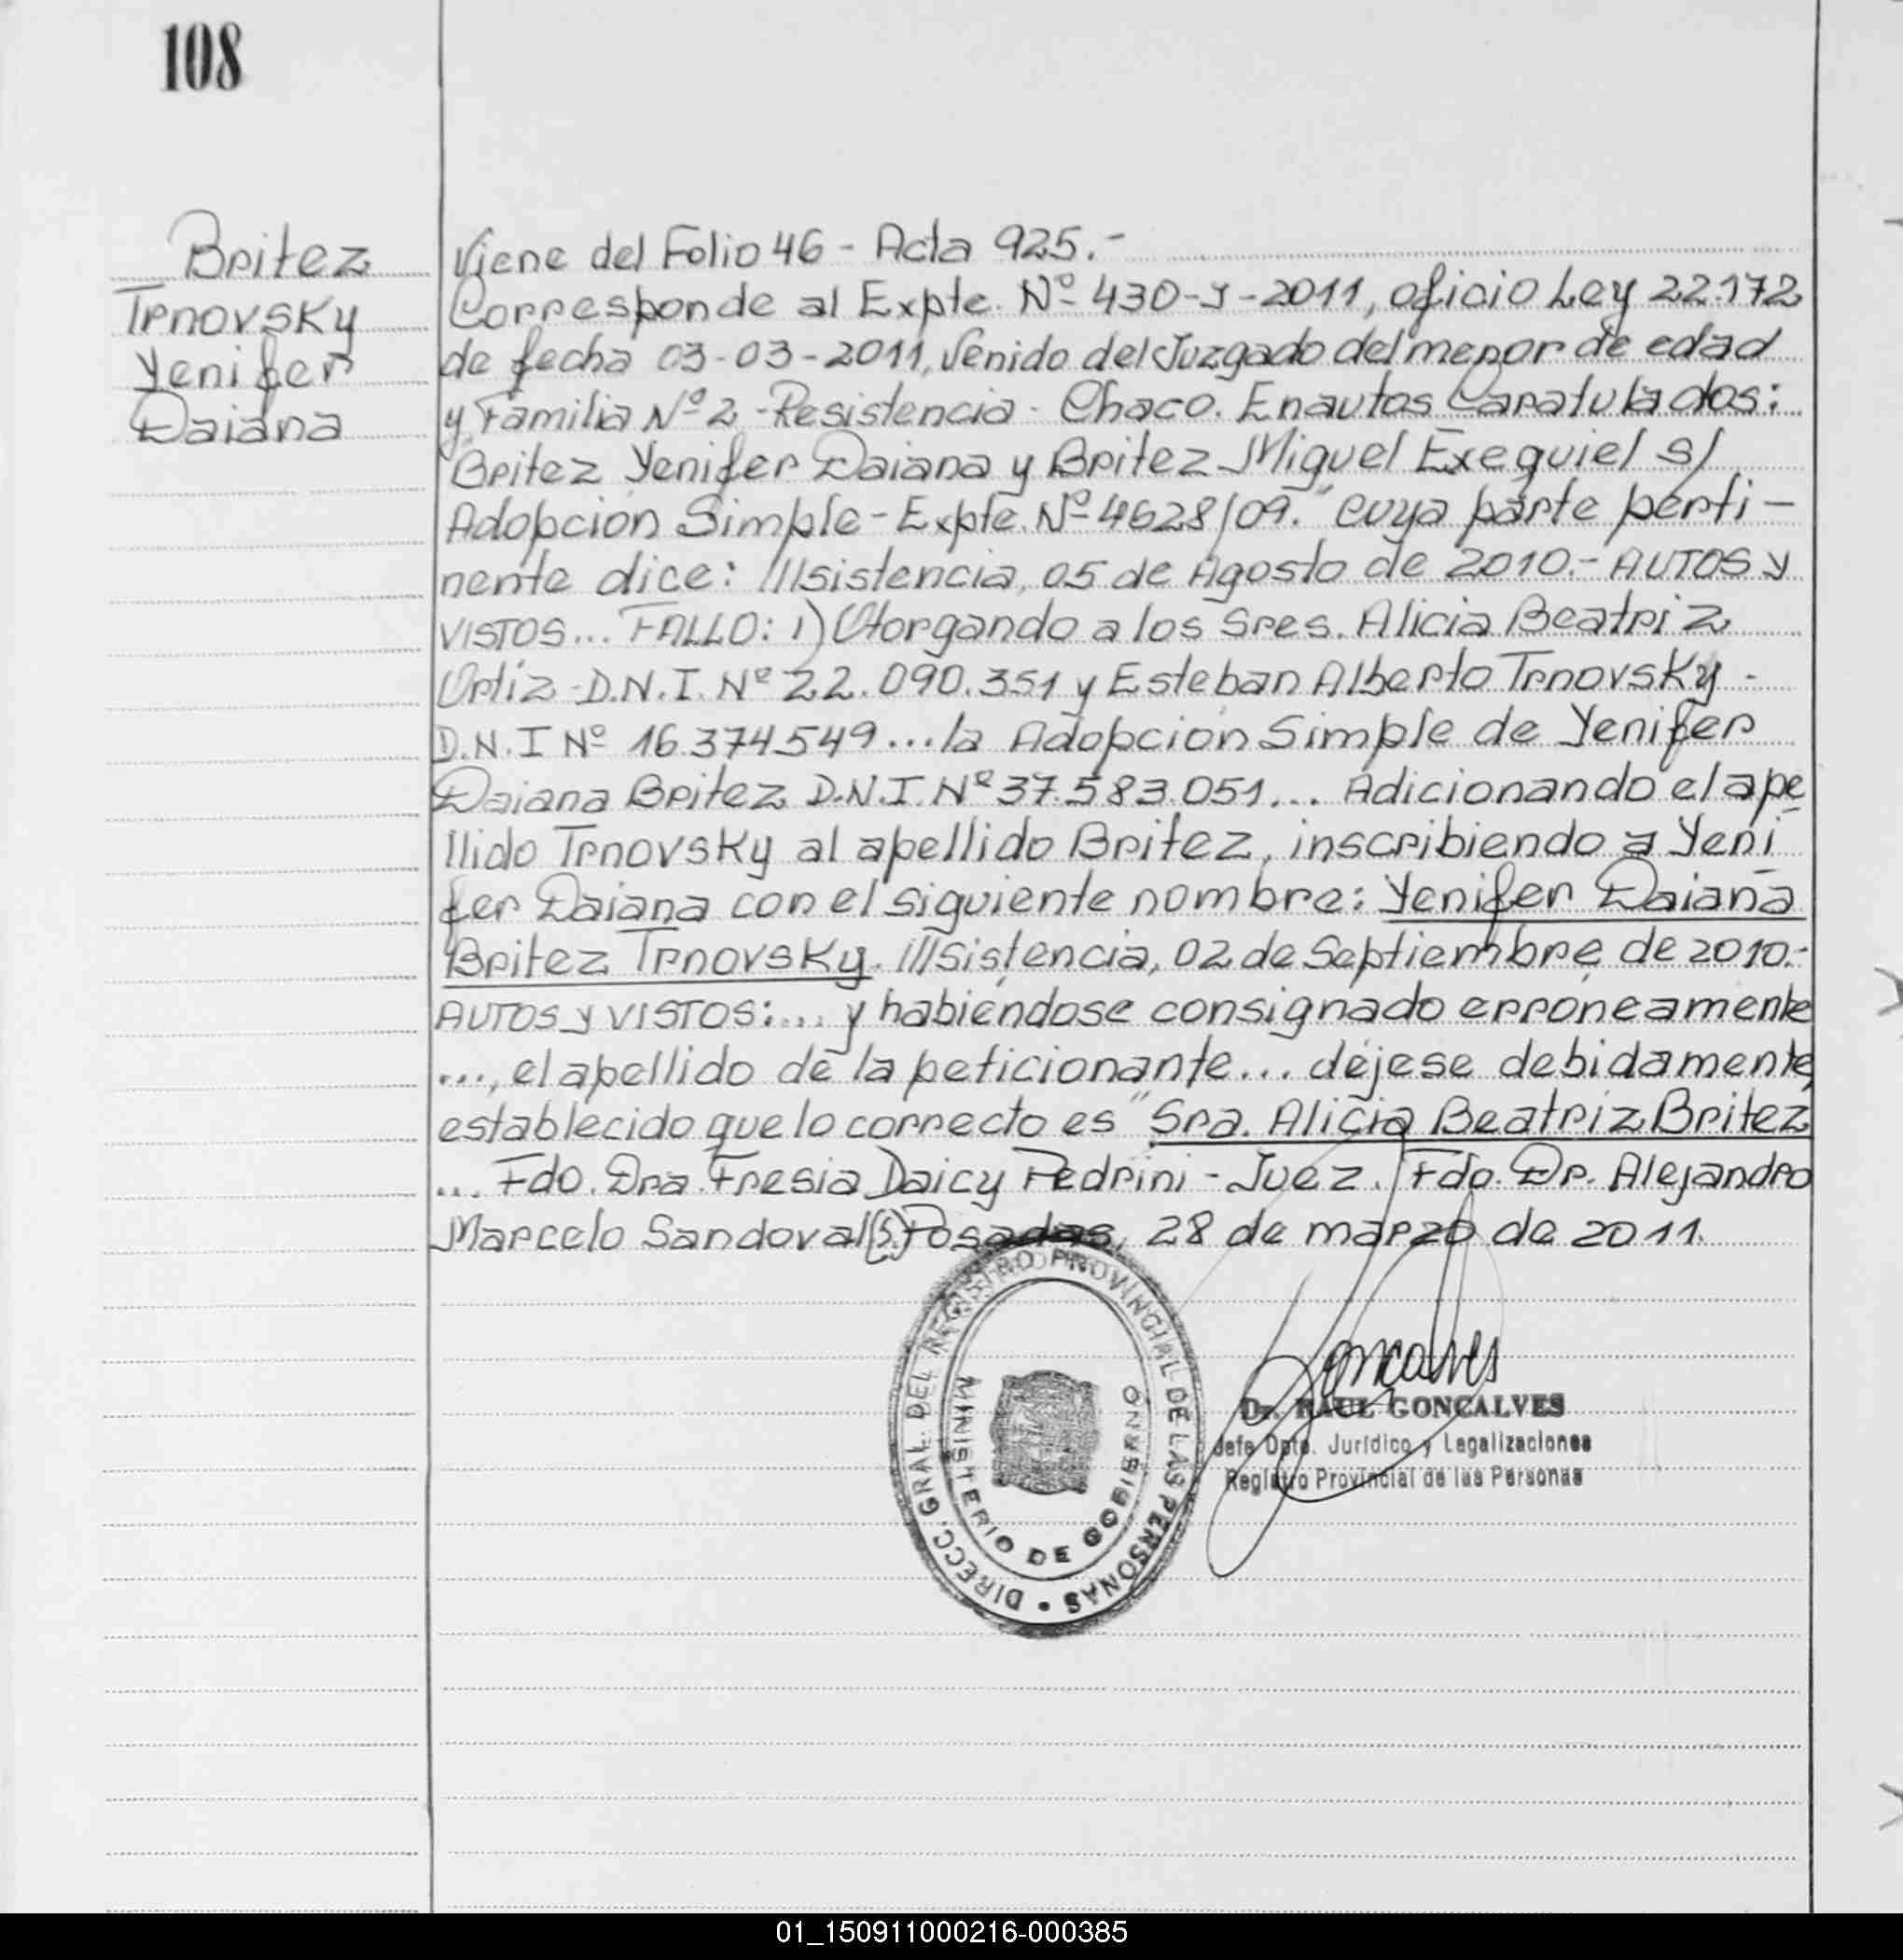 108
Britez
Trnovsky
Yenifer
Daiana
Viene del Folio 46 - Acta 925.-
Corresponde al Expte. Nº 430-J-2011, oficio Ley 22.172
de fecha 03-03-2011, Venido del Juzgado del menor de edad
y Familia Nº 2 - Resistencia - Chaco. En autos Caratulados:
"Britez Yenifer Daiana y Britez Miguel Exequiel s/
Adopción Simple - Expte. Nº 4628/09." cuya parte perti-
nente dice: ///sistencia, 05 de Agosto de 2010.- AUTOS y
VISTOS... FALLO: 1) Otorgando a los Sres. Alicia Beatriz
Ortiz - D.N.I. Nº 22.090.351 y Esteban Alberto Trnovsky -
D.N.I Nº 16.374.549 ... la Adopción Simple de Yenifer
Daiana Britez D.N.I. Nº 37.583.051... Adicionando el ape
llido Trnovsky al apellido Britez, inscribiendo a Yeni
fer Daiana con el siguiente nombre: Yenifer Daiana
Britez Trnovsky. ///sistencia, 02 de Septiembre de 2010.-
AUTOS y VISTOS:... y habiéndose consignado erróneamente
..., el apellido de la peticionante... déjese debidamente
establecido que lo correcto es "Sra. Alicia Beatriz Britez
... Fdo. Dra. Fresia Daicy Pedrini - Juez. Fdo. Dr. Alejandro
Marcelo Sandoval (S) Posadas, 28 de marzo de 2011.
DIRECC. GRAL. DEL REGISTRO PROVINCIAL DE LAS PERSONAS
MINISTERIO DE GOBIERNO
Goncalves
Dr. RAUL GONCALVES
Jefe Dpto. Jurídico y Legalizaciones
Registro Provincial de las Personas
01_150911000216-000385